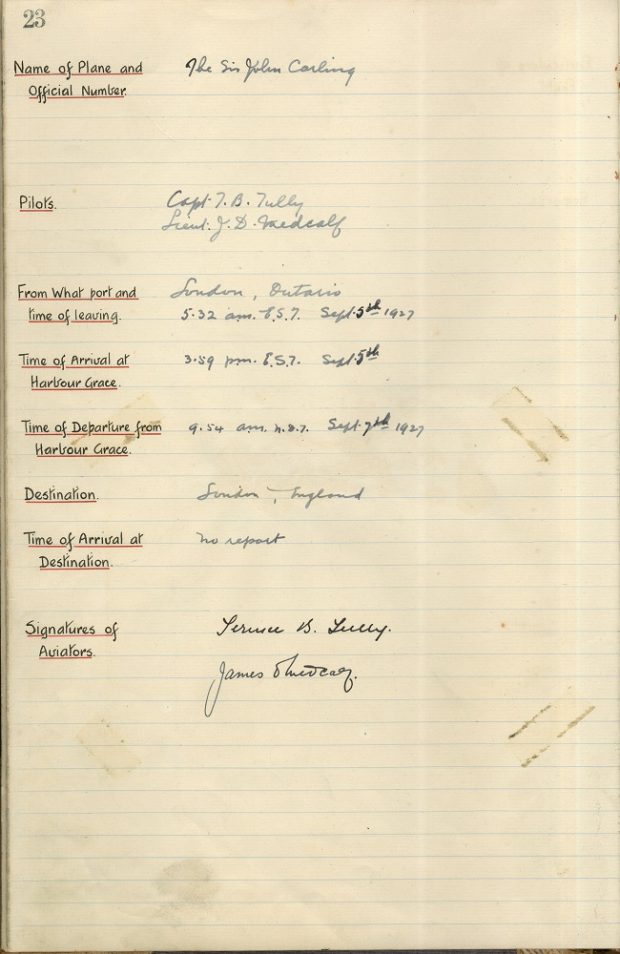 23
Name of Plane and The Sir John Carling
Official Number.
Pilots. Capt. T. B. Tully
Lieut. J. D. Medcalf
From What port and London, Ontario
time of leaving. 5.32 am. E.S.T. Sept. 5th 1927
Time of Arrival at 3.59 pm. E.S.T. Sept. 5th
Harbour Grace.
Time of Departure from 9.54 am. N.S.T. Sept. 7th 1927
Harbour Grace.
Destination. London, England
Time of Arrival at no report
Destination.
Signatures of Terence B. Tully.
Aviators.
James D Medcalf.